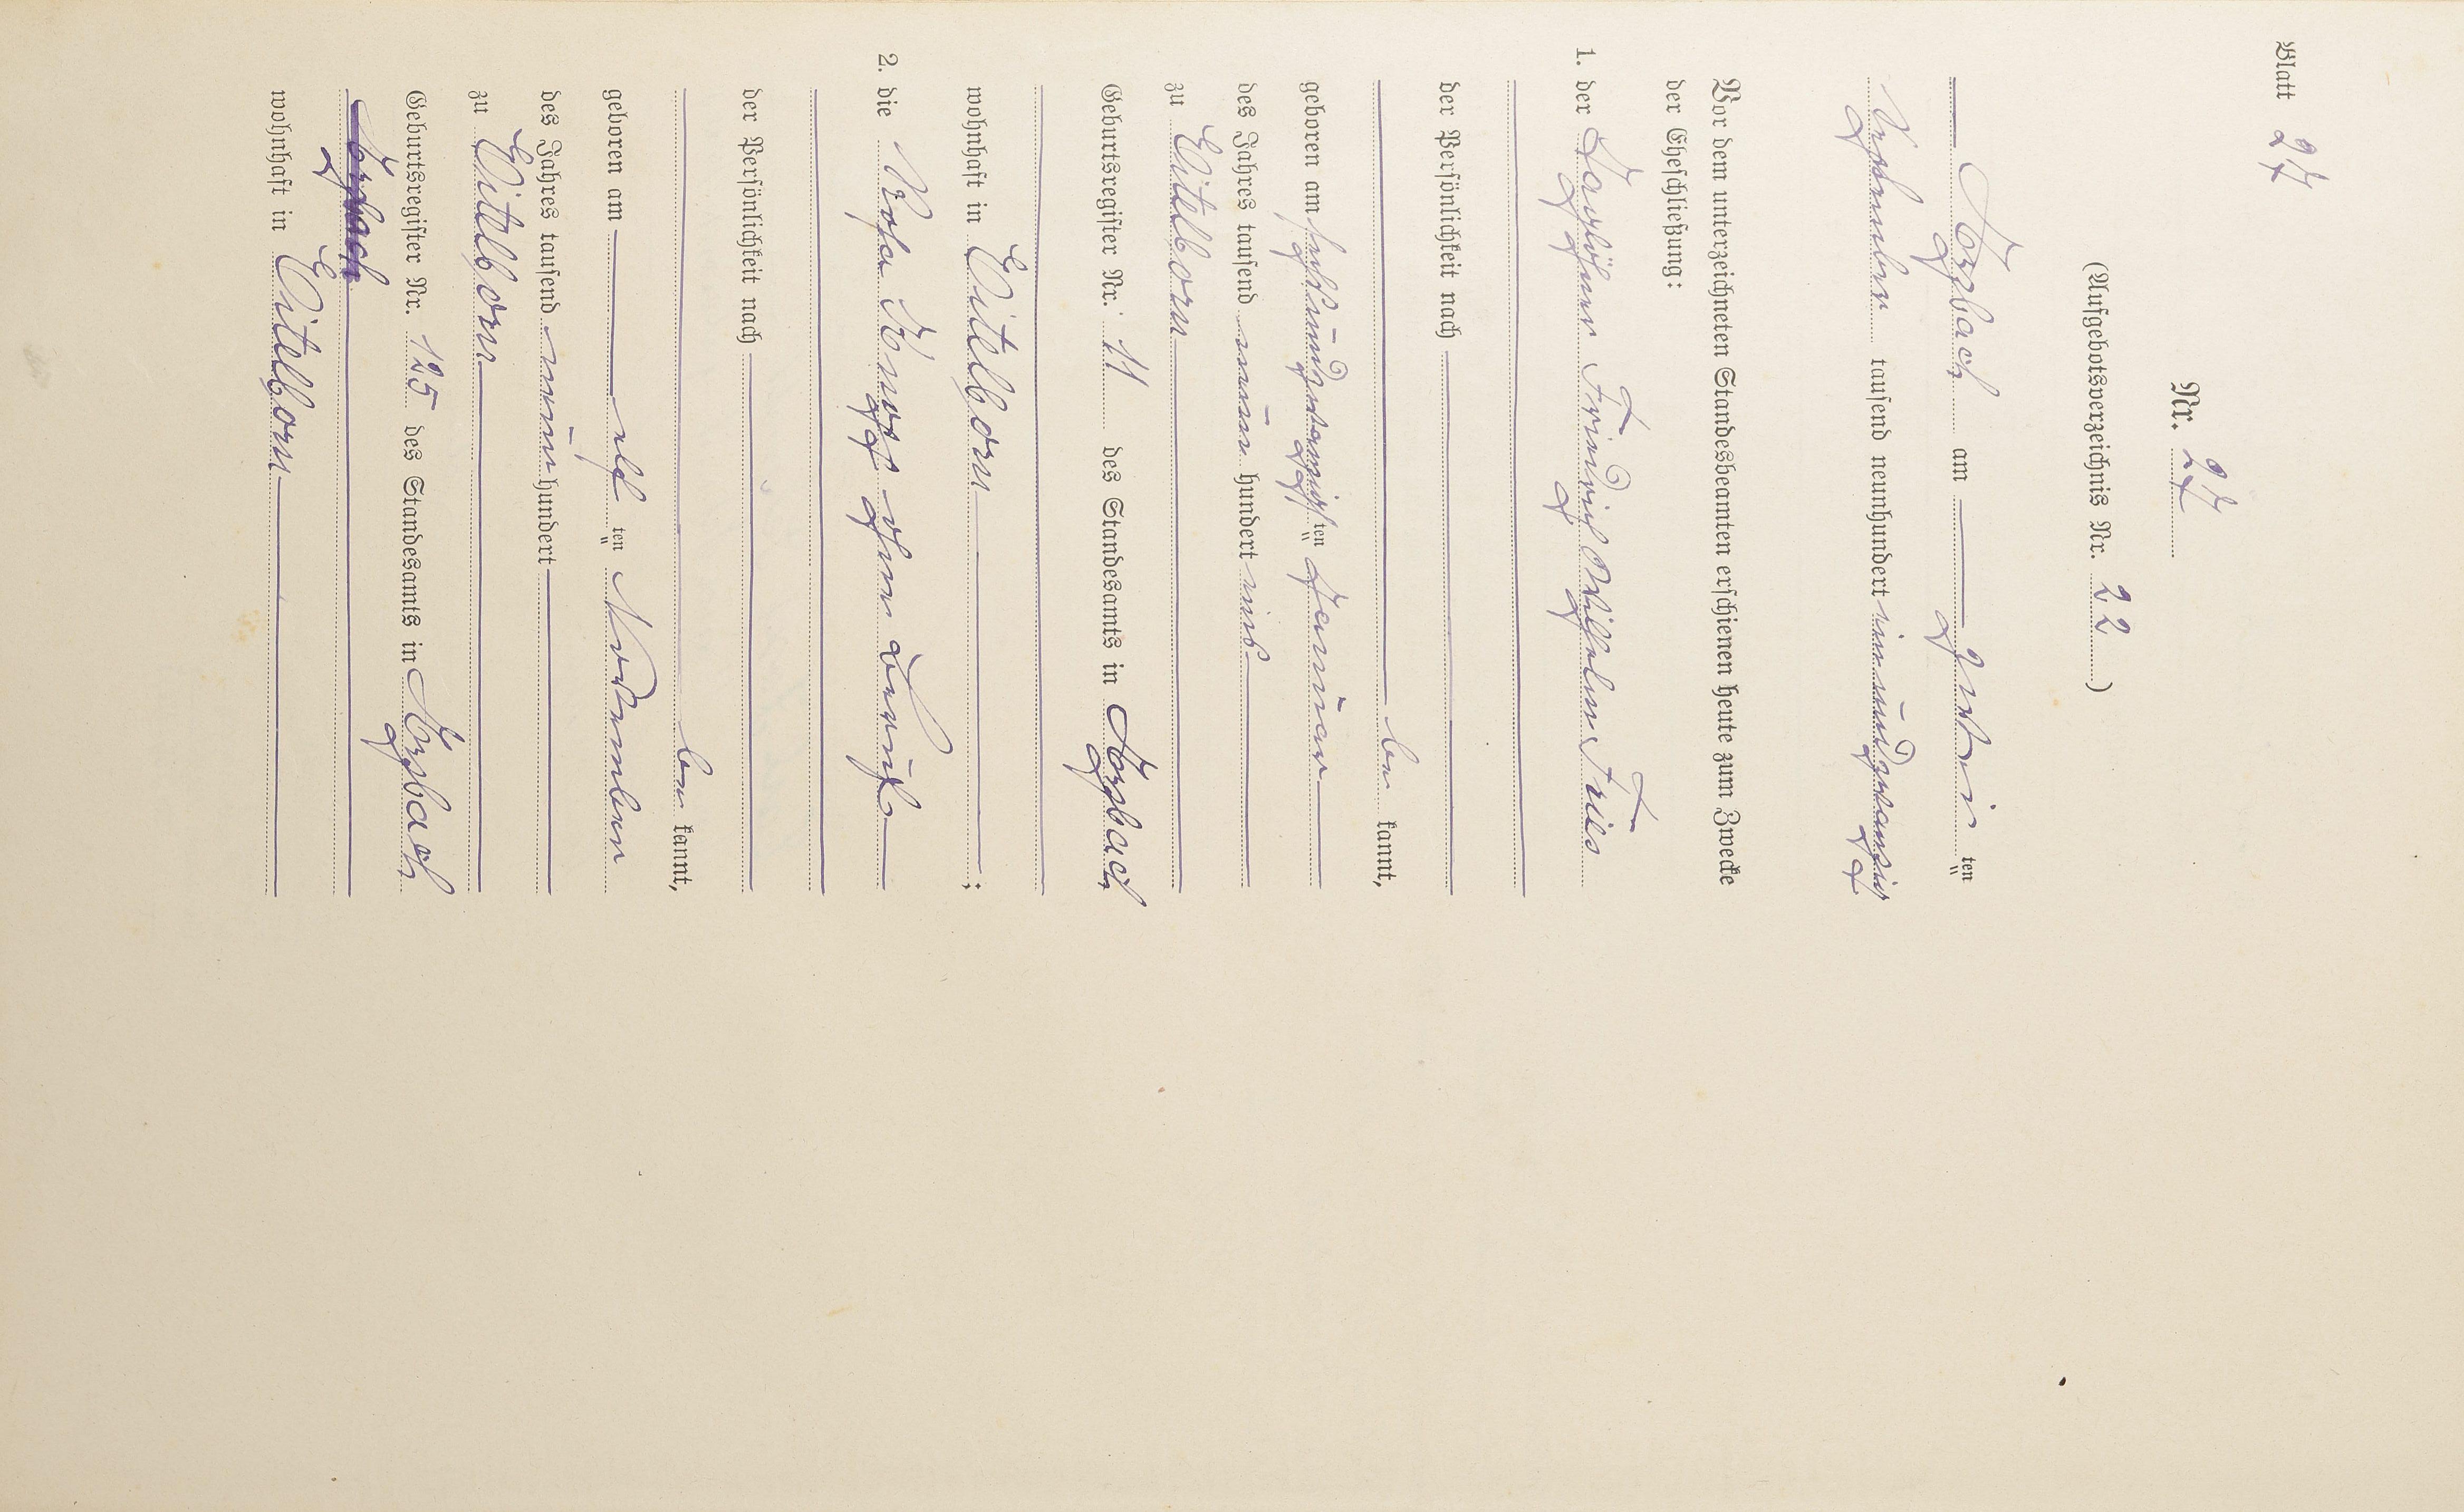 Blatt 27
Nr. 27
(Aufgebotsverzeichnis Nr. 22)
Arzbach am zweiten
September tausend neunhundert einundzwanzig
Vor dem unterzeichneten Standesbeamten erschienen heute zum Zwecke
der Eheschließung:
1. der Taglöhner Friedrich Wilhelm Fries
der Persönlichkeit nach
be kannt,
geboren am sechsundzwanzigsten Januar
des Jahres tausend neun hundert eins
zu Eitelborn
Geburtsregister Nr. 11 des Standesamts in Arzbach
wohnhaft in Eitelborn ;
2. die Rosa Knopp ohne Beruf
der Persönlichkeit nach
be kannt,
geboren am elf ten November
des Jahres tausend neun hundert
zu Eitelborn
Geburtsregister Nr. 125 des Standesamts in Arzbach
Arzbach
wohnhaft in Eitelborn